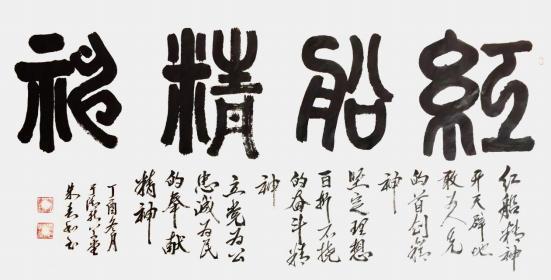 紅船精神
红船精神
开天辟地
敢为人先
的首创精
神
坚定理想
百折不挠
的奋斗精
神
立党为公
忠诚为民
的奉献
精神
丁酉冬月